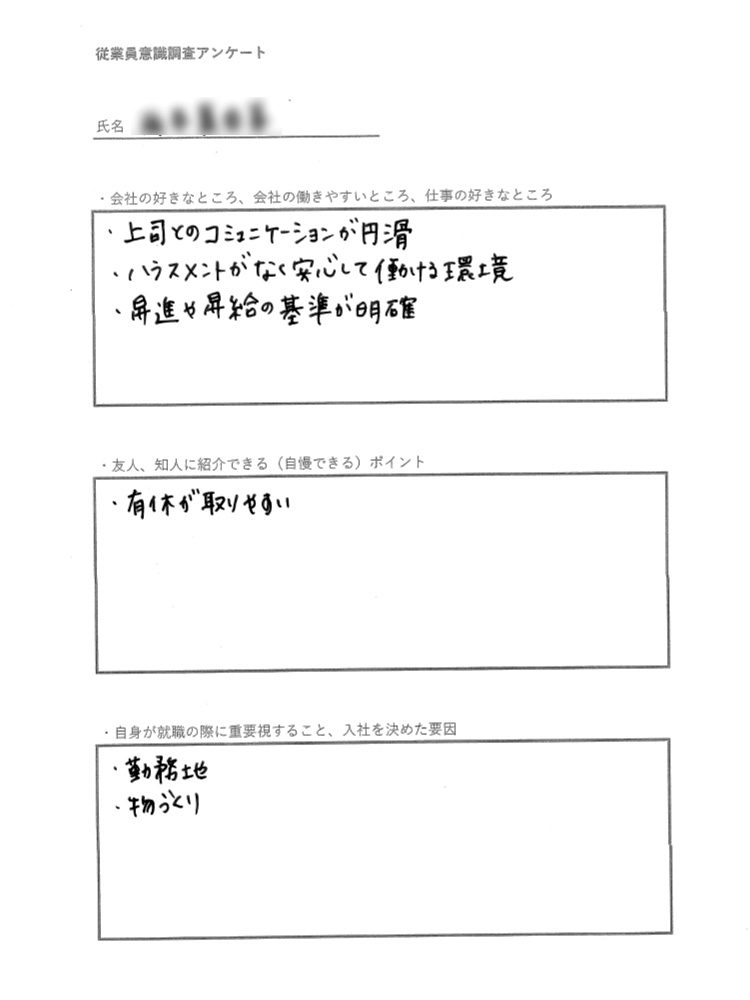 従業員意識調査アンケート
氏名
・会社の好きなところ、会社の働きやすいところ、仕事の好きなところ
・上司とのコミュニケーションが円滑
・ハラスメントがなく安心して働ける環境
・昇進や昇給の基準が明確
・友人、知人に紹介できる（自慢できる）ポイント
・有休が取りやすい
・自身が就職の際に重要視すること、入社を決めた要因
・勤務地
・物づくり